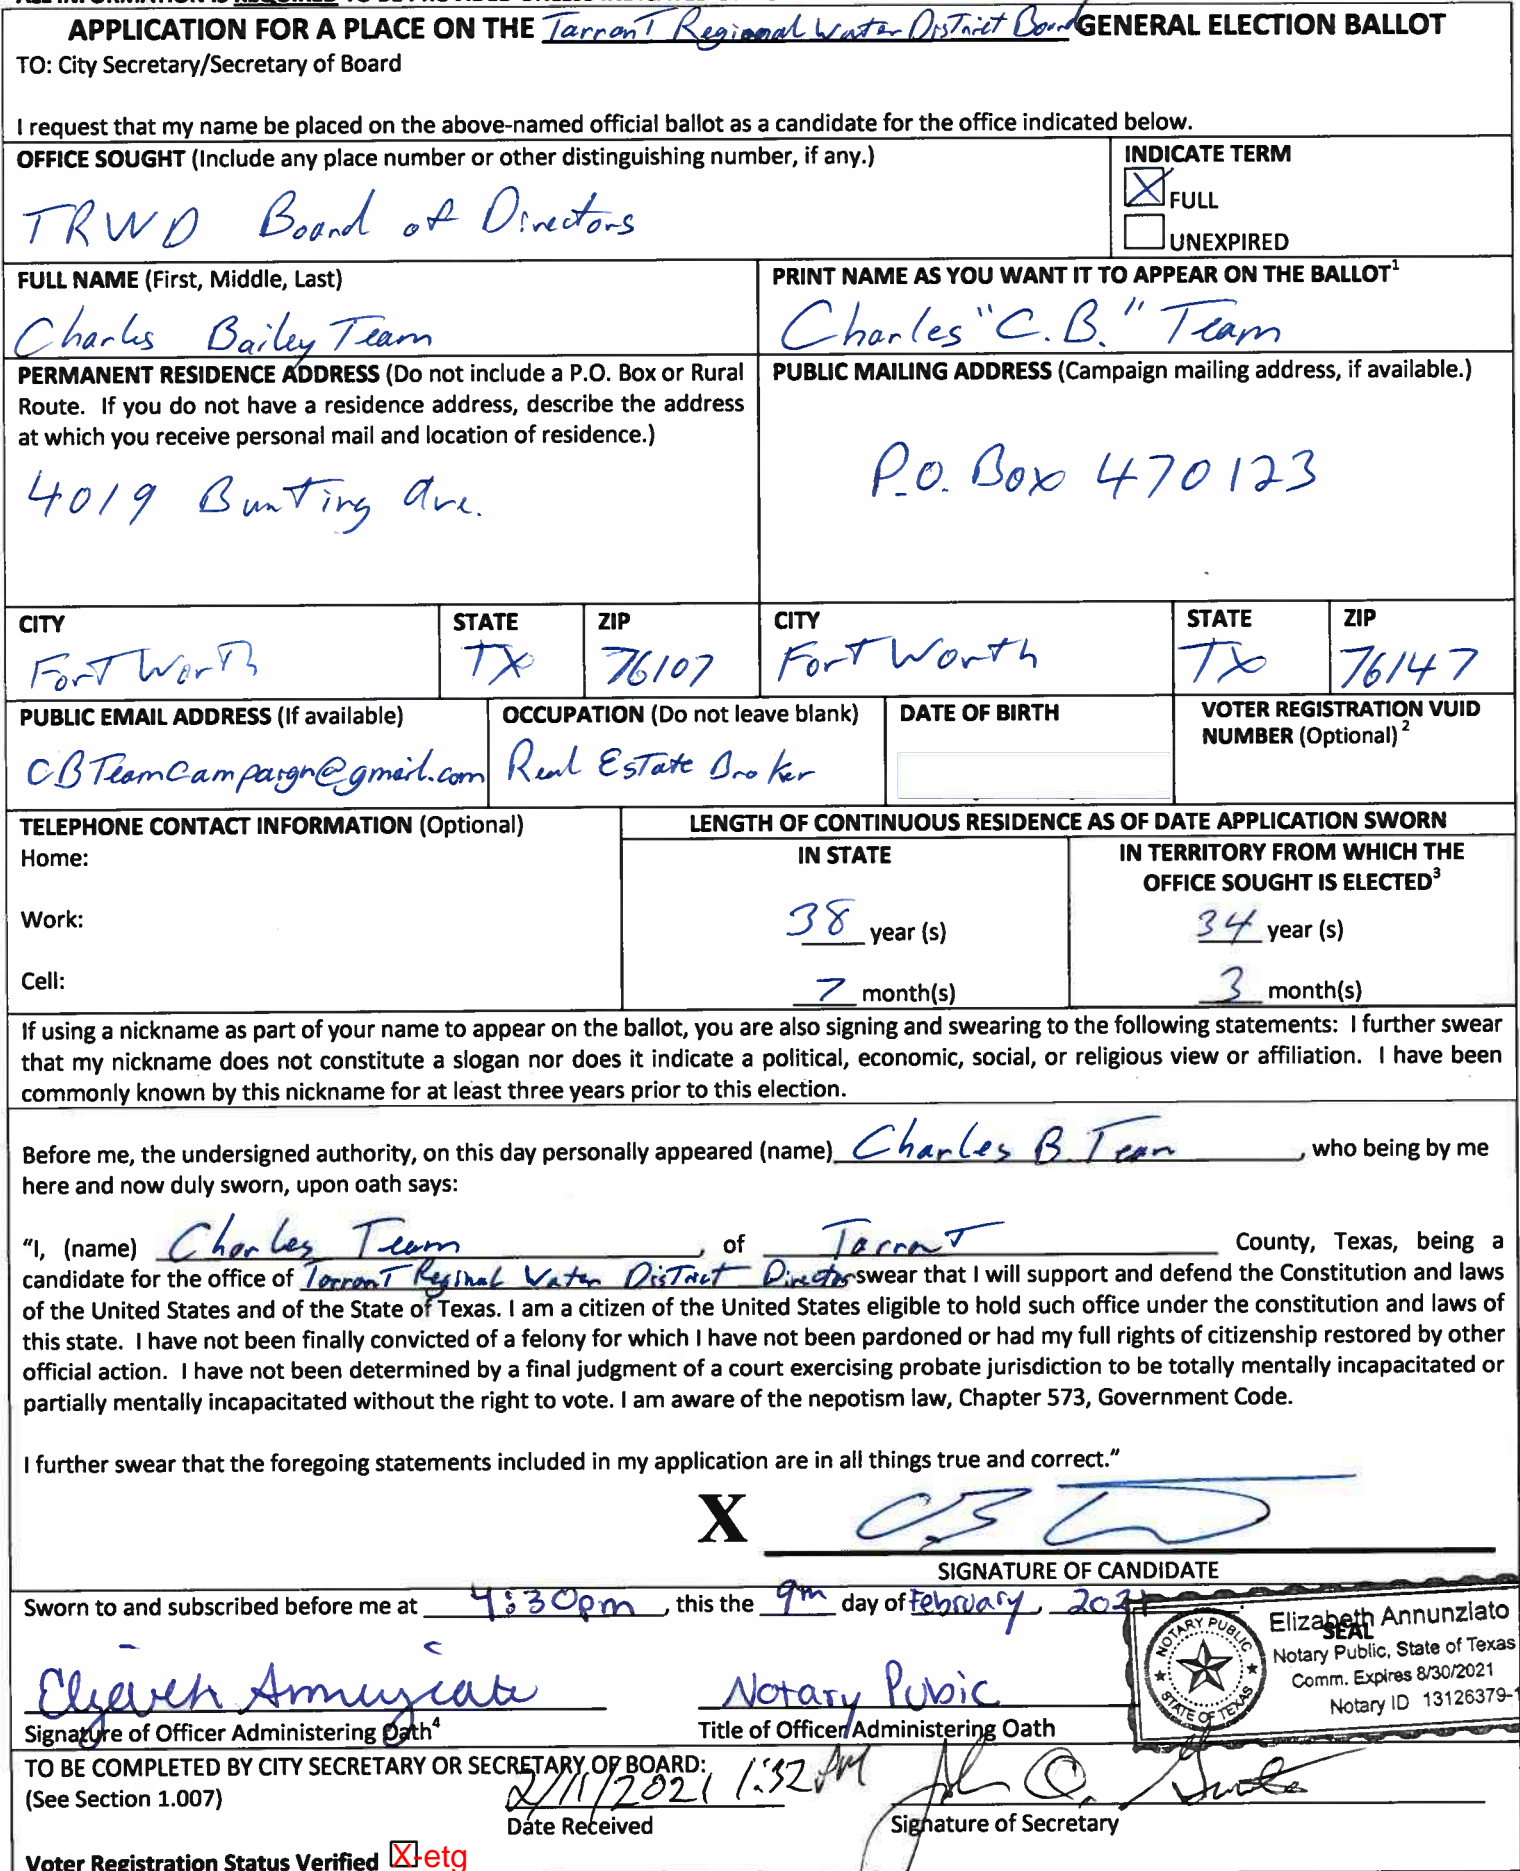 APPLICATION FOR A PLACE ON THE Tarrant Regional Water District Board GENERAL ELECTION BALLOT
TO: City Secretary/Secretary of Board
I request that my name be placed on the above-named official ballot as a candidate for the office indicated below.
OFFICE SOUGHT (Include any place number or other distinguishing number, if any.)
TRWD Board of Directors
INDICATE TERM
X FULL
UNEXPIRED
FULL NAME (First, Middle, Last)
Charles Bailey Team
PRINT NAME AS YOU WANT IT TO APPEAR ON THE BALLOT1
Charles "C.B." Team
PERMANENT RESIDENCE ADDRESS (Do not include a P.O. Box or Rural
Route. If you do not have a residence address, describe the address
at which you receive personal mail and location of residence.)
4019 Bunting Ave.
PUBLIC MAILING ADDRESS (Campaign mailing address, if available.)
P.O. Box 470123
CITY
Fort Worth
STATE
TX
ZIP
76107
CITY
Fort Worth
STATE
TX
ZIP
76147
PUBLIC EMAIL ADDRESS (If available)
CBTeamCampaign@gmail.com
OCCUPATION (Do not leave blank)
Real Estate Broker
DATE OF BIRTH
VOTER REGISTRATION VUID
NUMBER (Optional)2
TELEPHONE CONTACT INFORMATION (Optional)
Home:
Work:
Cell:
LENGTH OF CONTINUOUS RESIDENCE AS OF DATE APPLICATION SWORN
IN STATE
38 year (s)
7 month(s)
IN TERRITORY FROM WHICH THE
OFFICE SOUGHT IS ELECTED3
34 year (s)
3 month(s)
If using a nickname as part of your name to appear on the ballot, you are also signing and swearing to the following statements: I further swear
that my nickname does not constitute a slogan nor does it indicate a political, economic, social, or religious view or affiliation. I have been
commonly known by this nickname for at least three years prior to this election.
Before me, the undersigned authority, on this day personally appeared (name) Charles B. Team, who being by me
here and now duly sworn, upon oath says:
"I, (name) Charles Team, of Tarrant County, Texas, being a
candidate for the office of Tarrant Reginal Water District Director swear that I will support and defend the Constitution and laws
of the United States and of the State of Texas. I am a citizen of the United States eligible to hold such office under the constitution and laws of
this state. I have not been finally convicted of a felony for which I have not been pardoned or had my full rights of citizenship restored by other
official action. I have not been determined by a final judgment of a court exercising probate jurisdiction to be totally mentally incapacitated or
partially mentally incapacitated without the right to vote. I am aware of the nepotism law, Chapter 573, Government Code.
I further swear that the foregoing statements included in my application are in all things true and correct."
X CB T
SIGNATURE OF CANDIDATE
Sworn to and subscribed before me at 4:30pm, this the 9th day of February, 2021
Elizabeth Annunziato
SEAL
Notary Public, State of Texas
Comm. Expires 8/30/2021
Notary ID 13126379-1
NOTARY PUBLIC
STATE OF TEXAS
Elizabeth Annunziato
Signature of Officer Administering Oath4
Notary Pubic
Title of Officer Administering Oath
TO BE COMPLETED BY CITY SECRETARY OR SECRETARY OF BOARD:
(See Section 1.007)
2/11/2021 1:32 PM
Date Received
Signature of Secretary
Voter Registration Status Verified X-etg